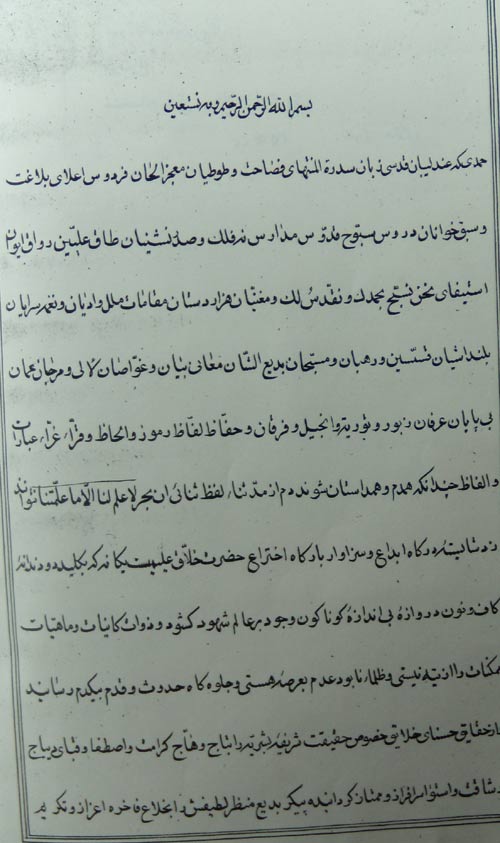 بسم الله الرحمن الرحیم وبه نستعین
حمدی که عندلیبان قدسی زبان سدرة المنتهای فصاحت و طوطیان معجز الحان فردوس اعلای بلاغت
و سبق خوانان دروس سبوح قدوس مدارس نه فلک و صدرنشینان طاق علیین رواق ایوان
استیفای نحن نسبح بحمدک و نقدس لک و مغنیان هزاردستان مقامات ملل و ادیان و نغمه سرایان
بلند آشیان قسیسین و رهبان و مسبحان بدیع الشان معانی بیان و غواصان لآلی و مرجان عمان
بی پایان عرفان زبور و توریة و انجیل و فرقان و حفاظ لفاظ رموز و الحاظ و قراء غراء عبارات
و الفاظ چندانکه همدم و همداستان شوند دم از مد ثناء لفظ ثنائی از بحر لا علم لنا الا ما علمتنا نتوانند
زد شایسته درگاه ابداع و سزاوار بارگاه اختراع حضرت خلاق علیمیست یگانه که بکلید دو دندانه
کاف و نون دروازهٔ بی اندازهٔ گوناگون وجود بر عالم شهود گشود و ذوات کاینات و ماهیات
ممکنات را از تیه نیستی و ظلمات نابود عدم بعرصهٔ هستی و جلوه گاه حدوث و قدم بیکدم رسانید
از حقایق حسنای خلایق خصوص حقیقت شریفه بشریه را بتاج وهاج کرامت و اصطفا و قبای دیباج
رشاقت و استوا سرافراز و ممتاز گردانیده پیکر بدیع منظر لطیفش را بخلاع فاخره اعزاز و تکریم